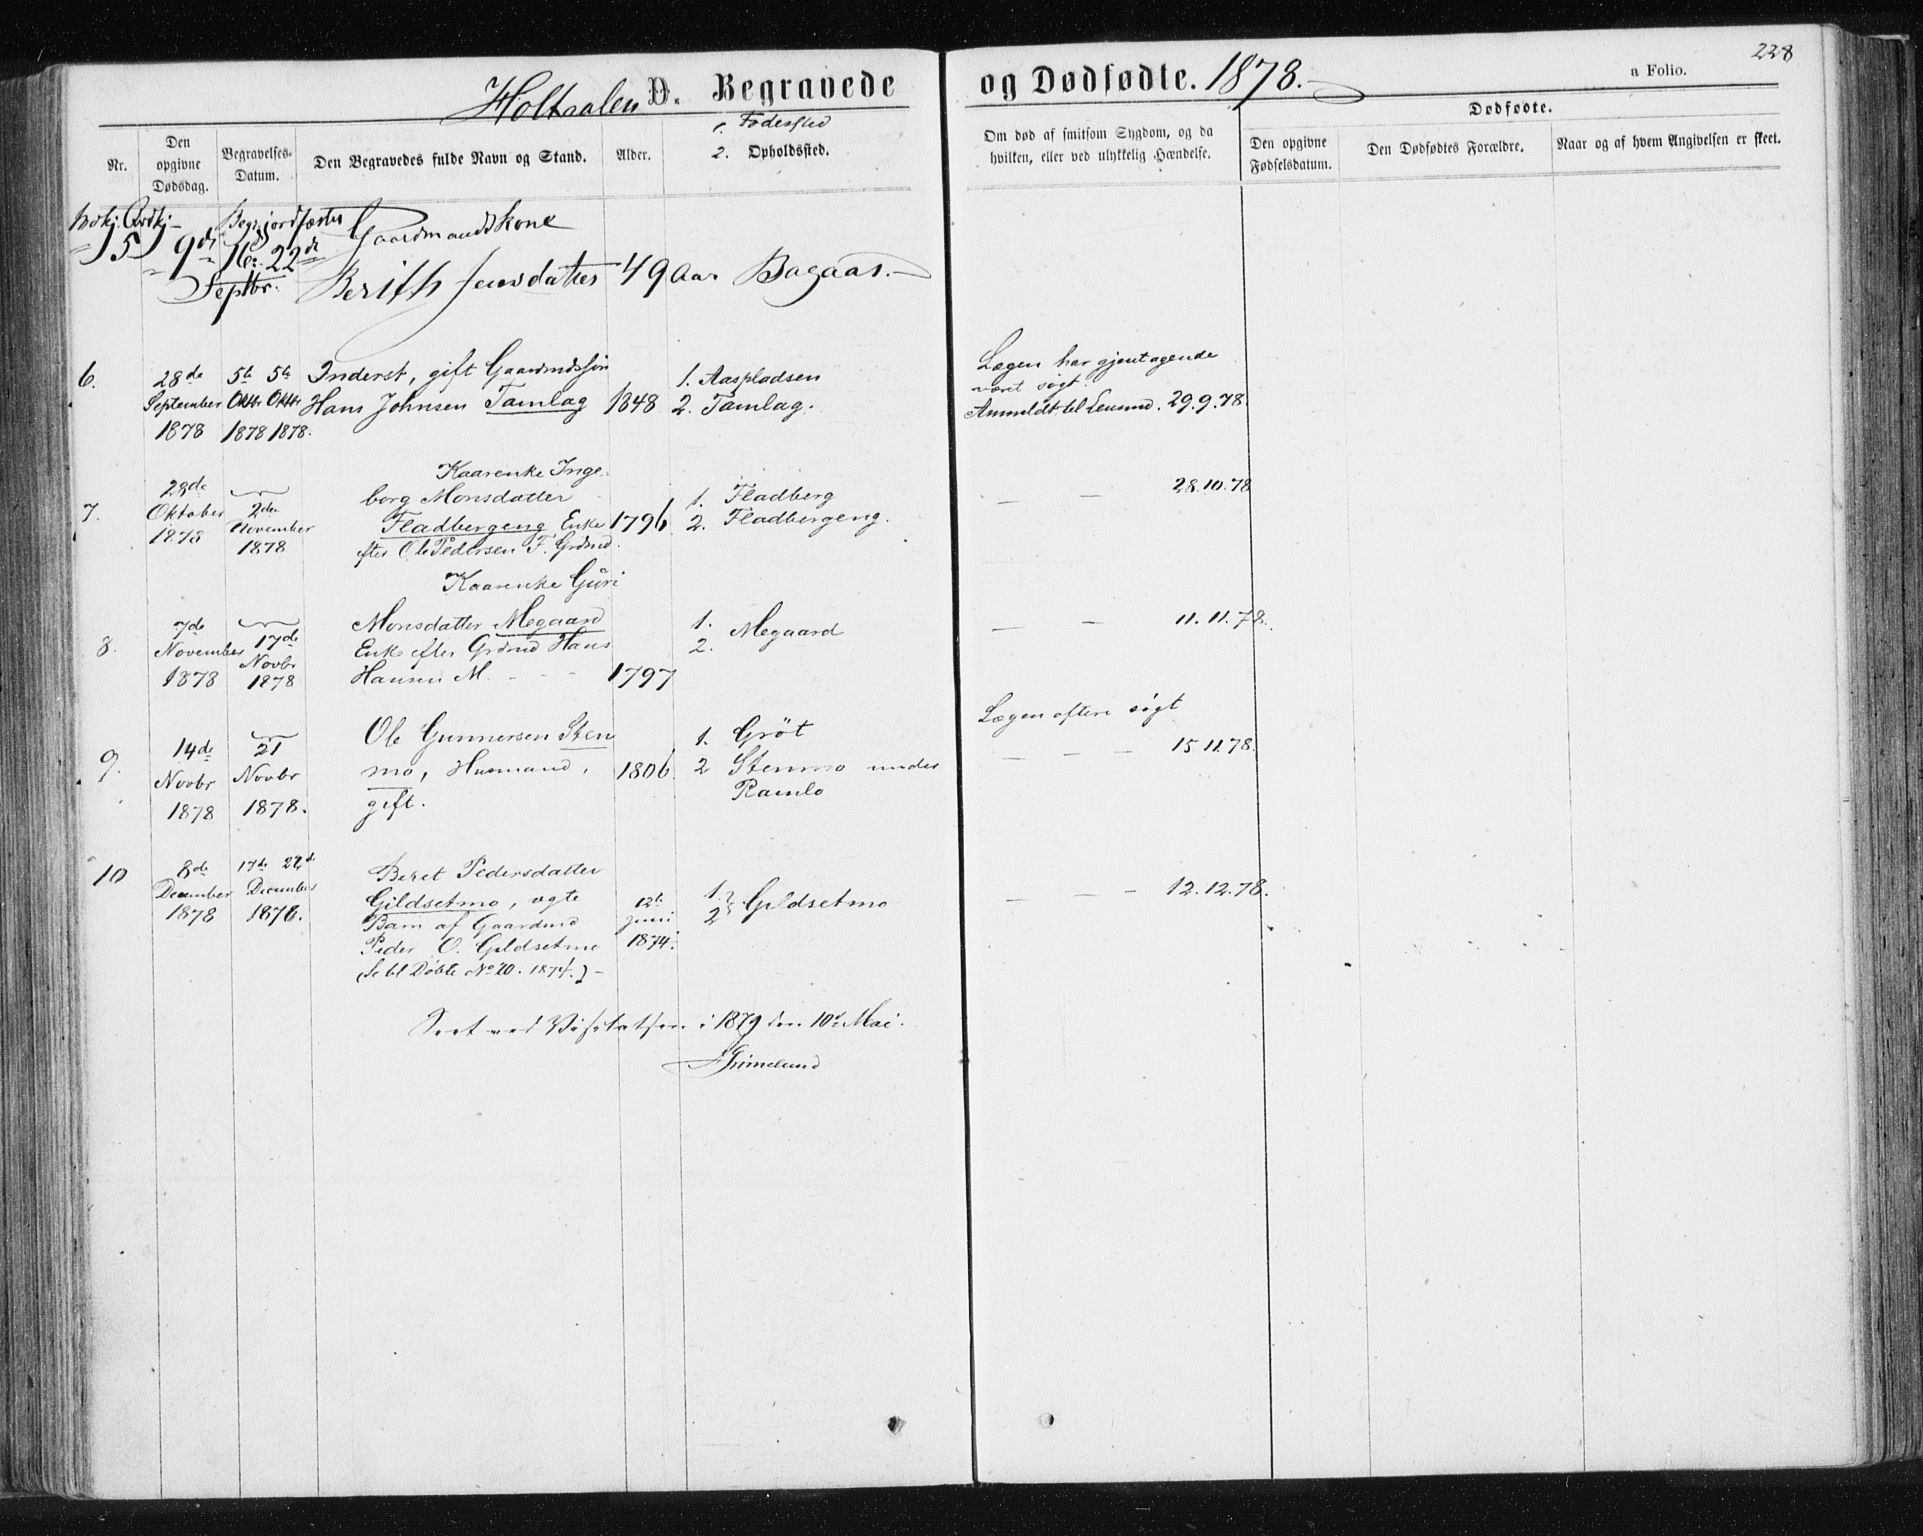 228
Holtaalen D. Begravede og Dødfødte. 1878.
a Folio.
Nr.
Den opgivne Dødsdag.
Begravelses-Datum.
Den Begravedes fulde Navn og Stand.
Alder.
1. Fødested
2. Opholdssted.
Om død af smitsom Sygdom, og da
hvilken, eller ved ulykkelig Hændelse.
Dødfødte.
Den opgivne Fødselsdatum.
Den Dødfødtes Forældre.
Naar og af hvem Angivelsen er skeet.
Begr. jordfæstet
5 9de 16. 22de Gaardmandskone
Septbr. Berith Jensdatter 49 Aar Bagaas.
6. 28de September 1878
5te 5te Oktbr Oktbr 1878 1878.
Inderst, gift Gaardmdssøn
Hans Johnsen Tamlag 1848
1. Aaspladsen
2. Tamlag.
Lægen har gjentagende
været søgt.
Anmeldt til Lensmd. 29.9.78.
7. 28de Oktober 1878
2den November 1878
Kaarenke Inge-
borg Monsdatter
Fladbergeng Enke 1796
efter Ole Pedersen F. Grdmd.
1. Fladberg
2. Fladbergeng.
— — 28.10.78
8. 7de November 1878
17de Novbr 1878
Kaarenke Guri
Monsdatter Megaard
Enke efter Grdmd Hans
Hansen M. - - - 1797
1.
2. Megaard
— — 11.11.78.
9. 14de Novbr 1878
21 Novbr 1878.
Ole Gunnersen Sten
mo, Husmand, 1806
gift.
1. Gröt
2 Stenmo under
Ramlo
Lægen oftere søgt
— — 15.11.78.
10 8de December 1878
17de 22de December 1878.
Beret Pedersdatter
Gildsetmo, ægte
Barn af Gaardmd
Peder O. Gildsetmo
(Se bl Døbte No 20. 1874.) –
12te Juni 1874.
1.
2 Gildsetmo
— – 12.12.78.
Seet ved Visitatsen i 1879 den 10de Mai.
Grimelund